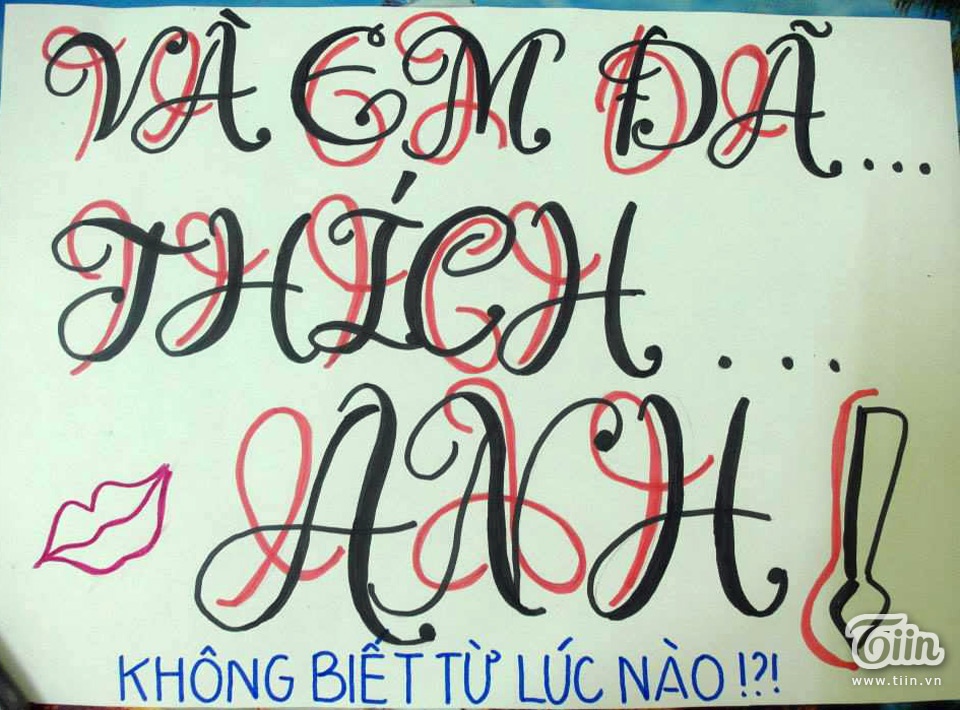 VÀ EM ĐÃ...
THÍCH ....
ANH!
KHÔNG BIẾT TỪ LÚC NÀO !?!
Tiin
www.tiin.vn